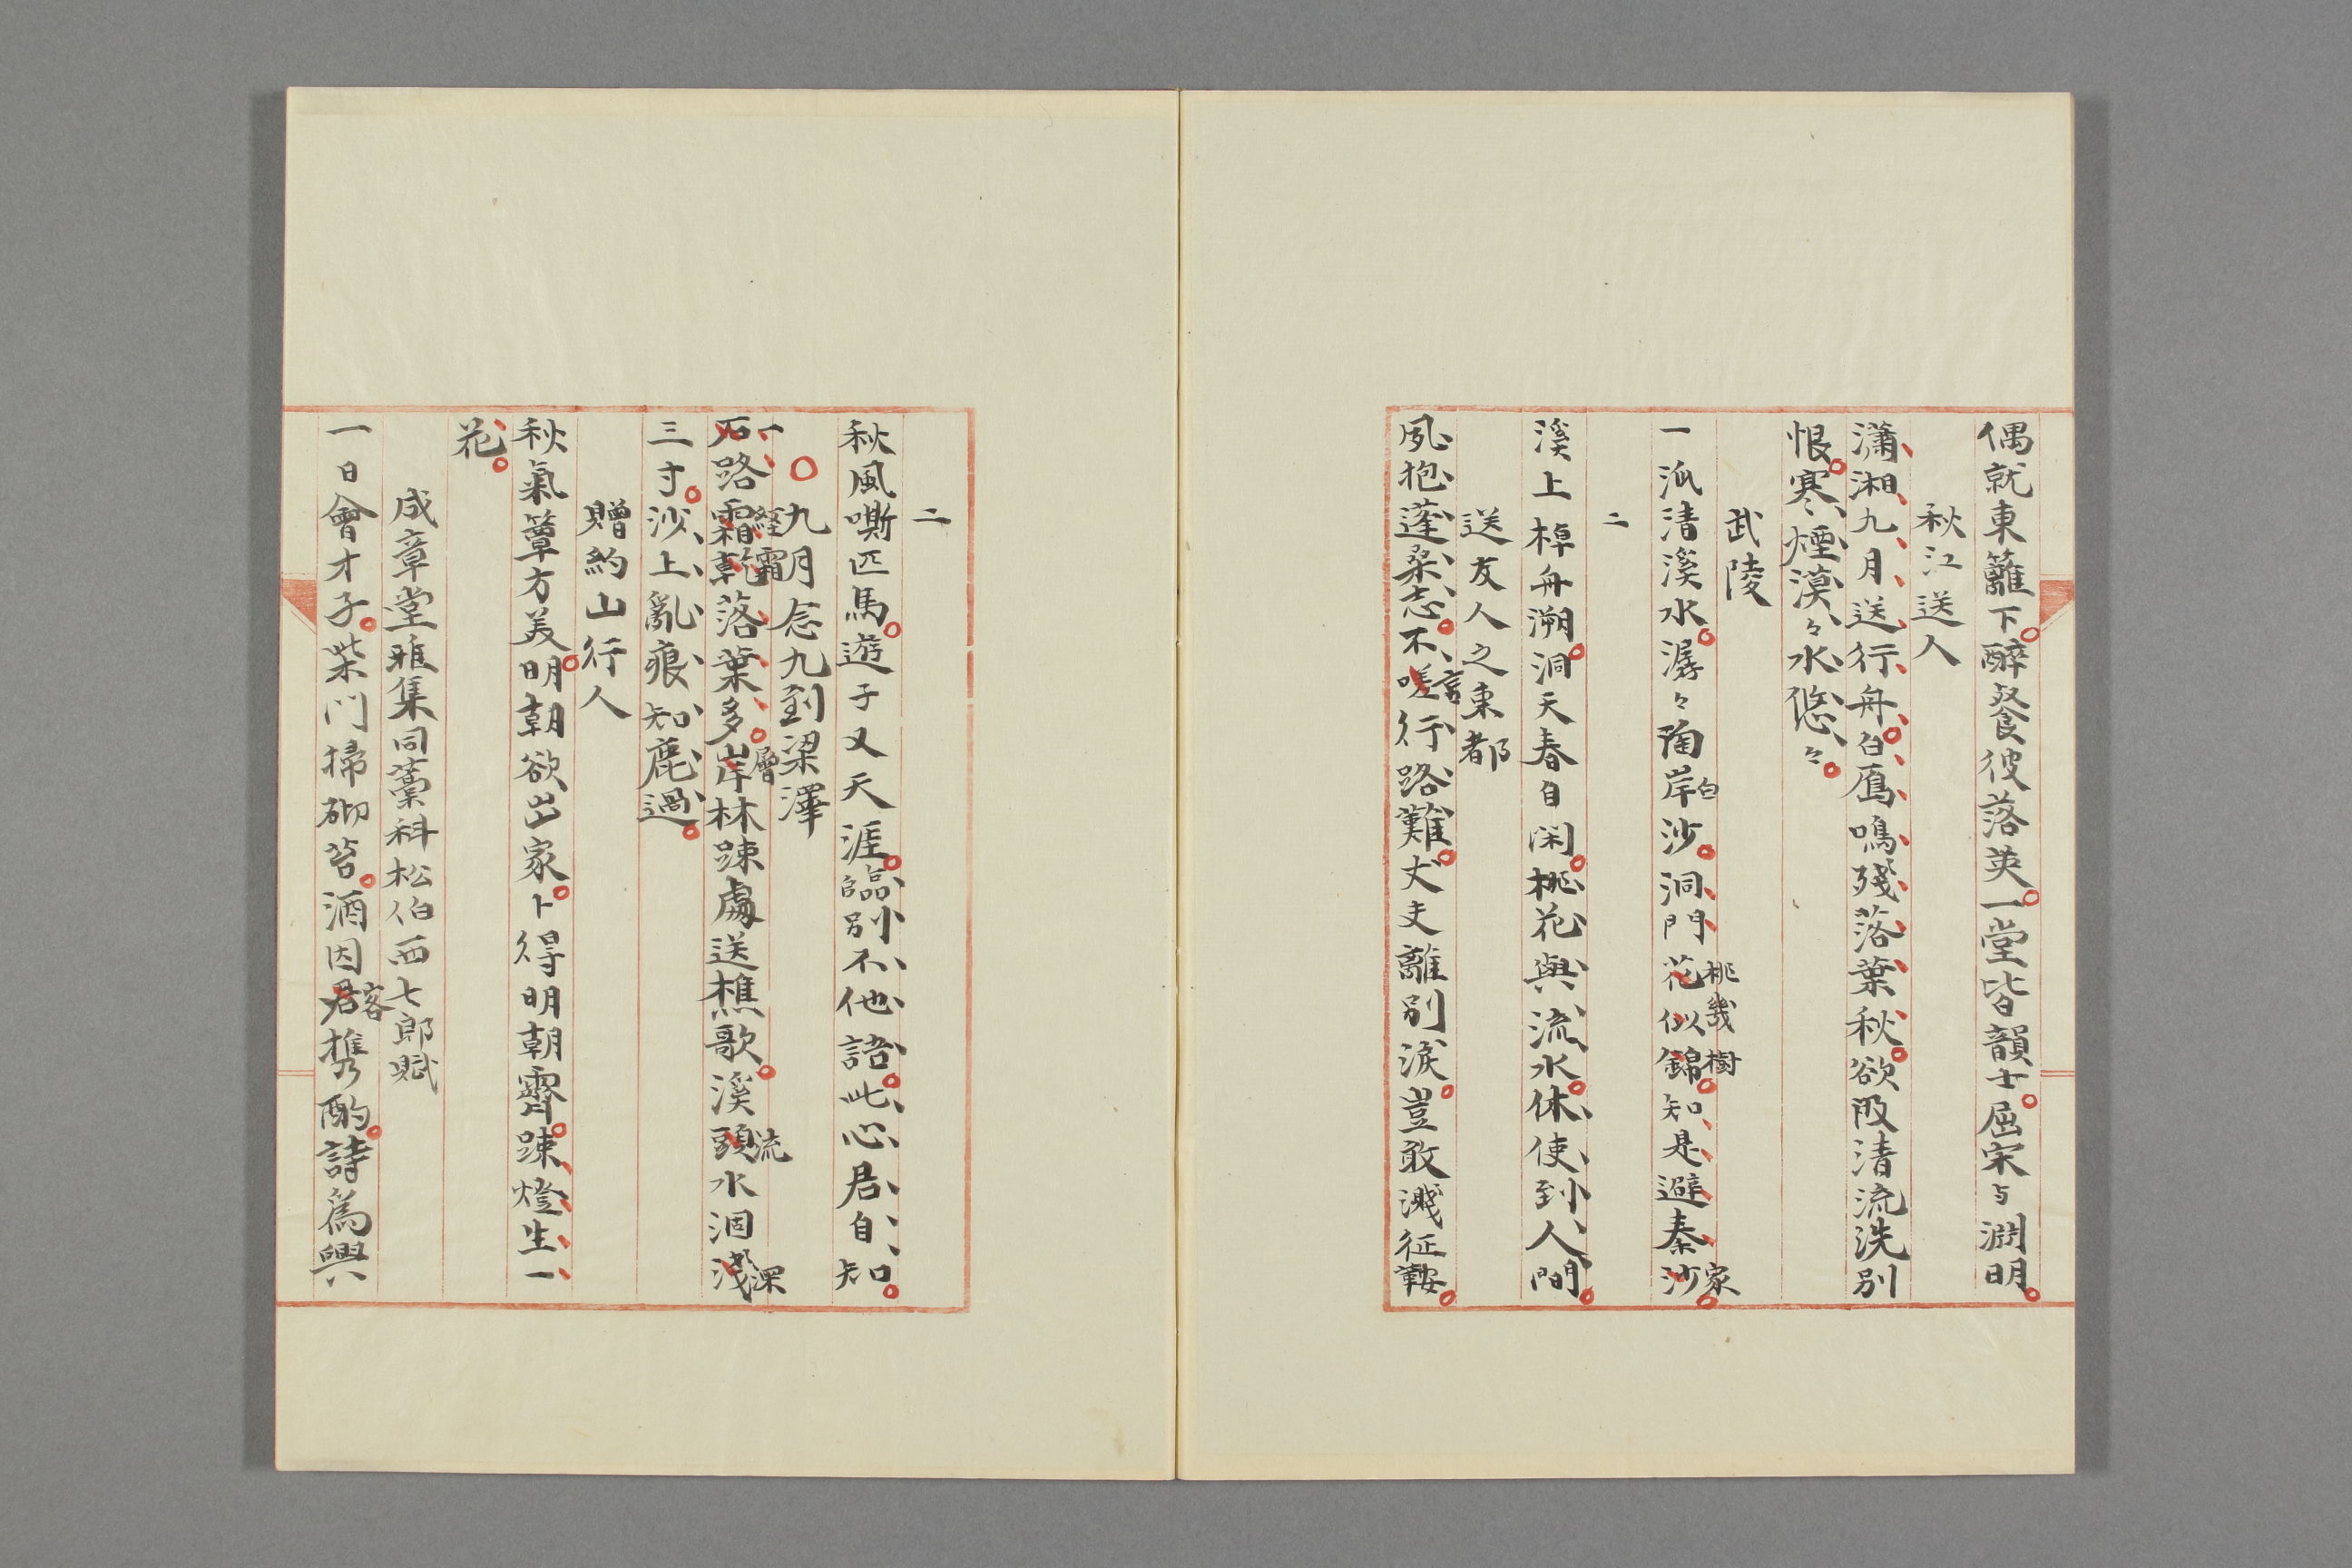 偶就東籬下醉餐彼落英一堂皆韻士屈宋与淵明
秋江送人
瀟湘九月送行舟白鴈鳴殘落葉秋欲汲清流洗別
恨寒煙漠々水悠々
武陵
一派清溪水潺々陶岸沙洞門花似錦知是避秦沙
白
桃幾樹
家
二
溪上棹舟溯洞天春自閑桃花與流水休使到人間
送友人之東都
夙抱蓬桑志不嗟行路難丈夫離別淚豈敢濺征鞍
言
二
秋風嘶匹馬遊子又天涯臨別不他語此心君自知
九月念九到梁澤
石路霜乾落葉多岸林踈處送樵歌溪頭水涸淺
一
経霜
層
流
深
三寸沙上亂痕知鹿過
贈約山行人
秋氣簟方美明朝欲出家卜得明朝霽踈燈生一
花
成章堂雅集同藁科松伯西七郎賦
一日會才子柴門掃砌苔酒因君携酌詩為興
客